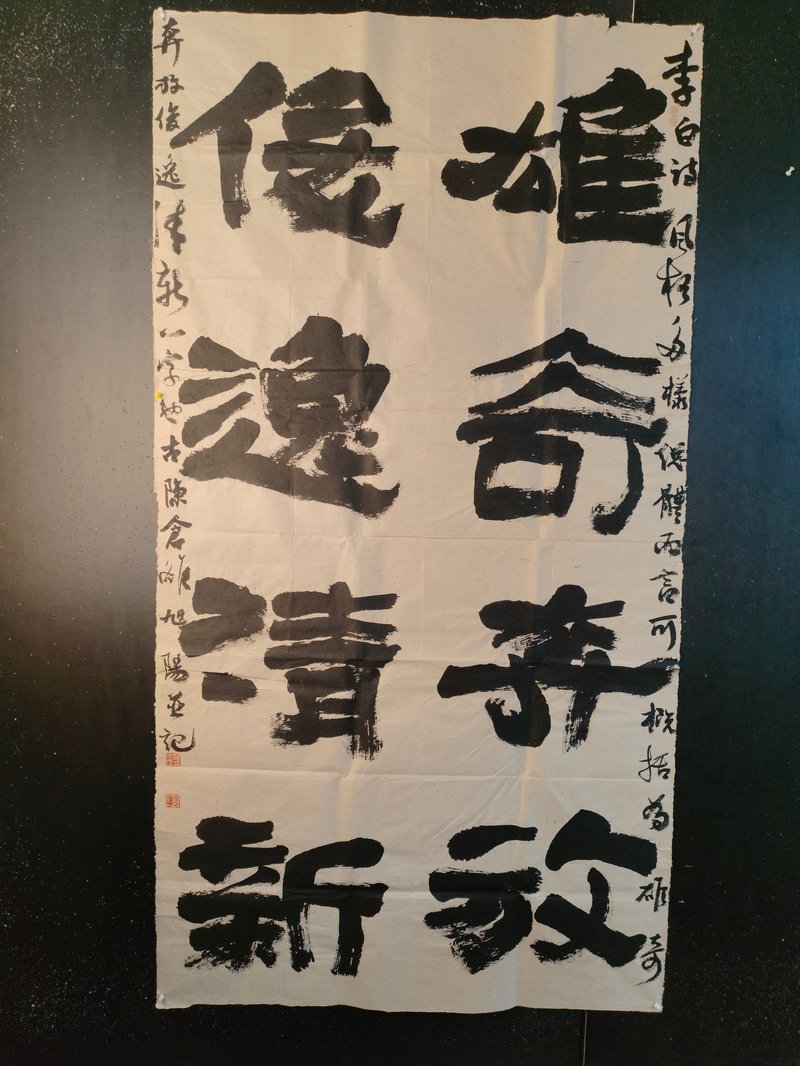 雄奇奔放
俊逸清新
李白诗风格多樣總體而言可概括為雄奇
奔放俊逸清新八字也古陳倉旭陽并記